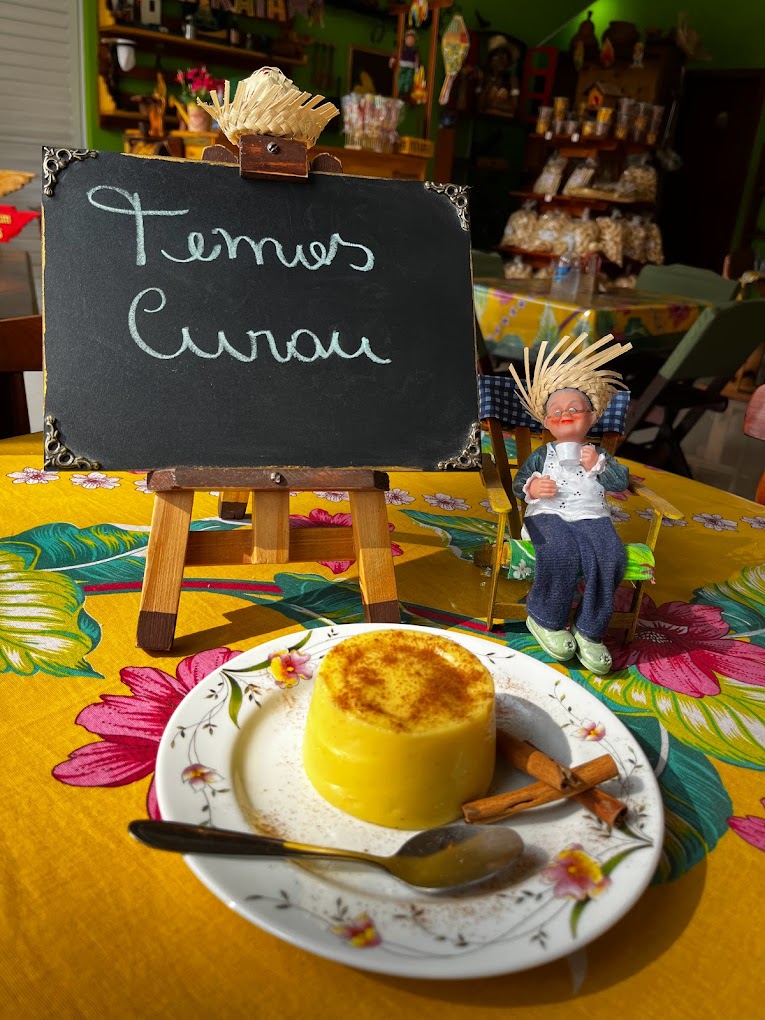 Temos
Curau